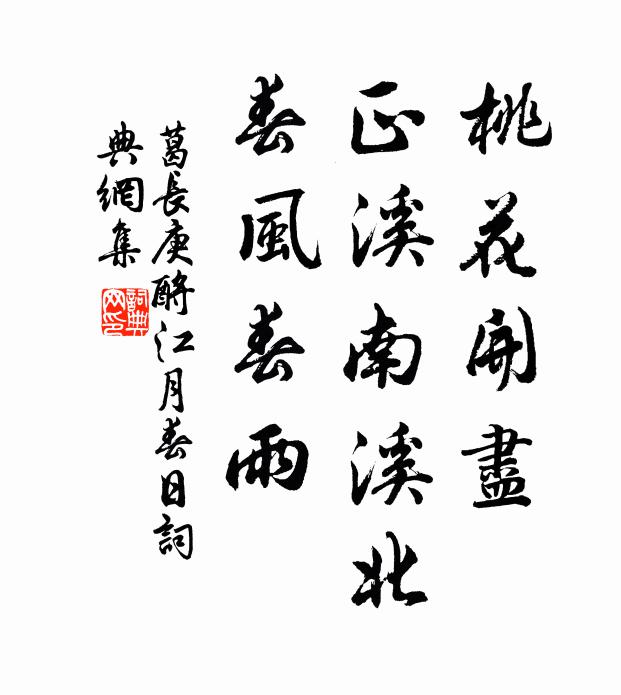 桃花開盡
正溪南溪北
春風春雨
葛長庚酹江月春日詞
典網集
詞典
网印